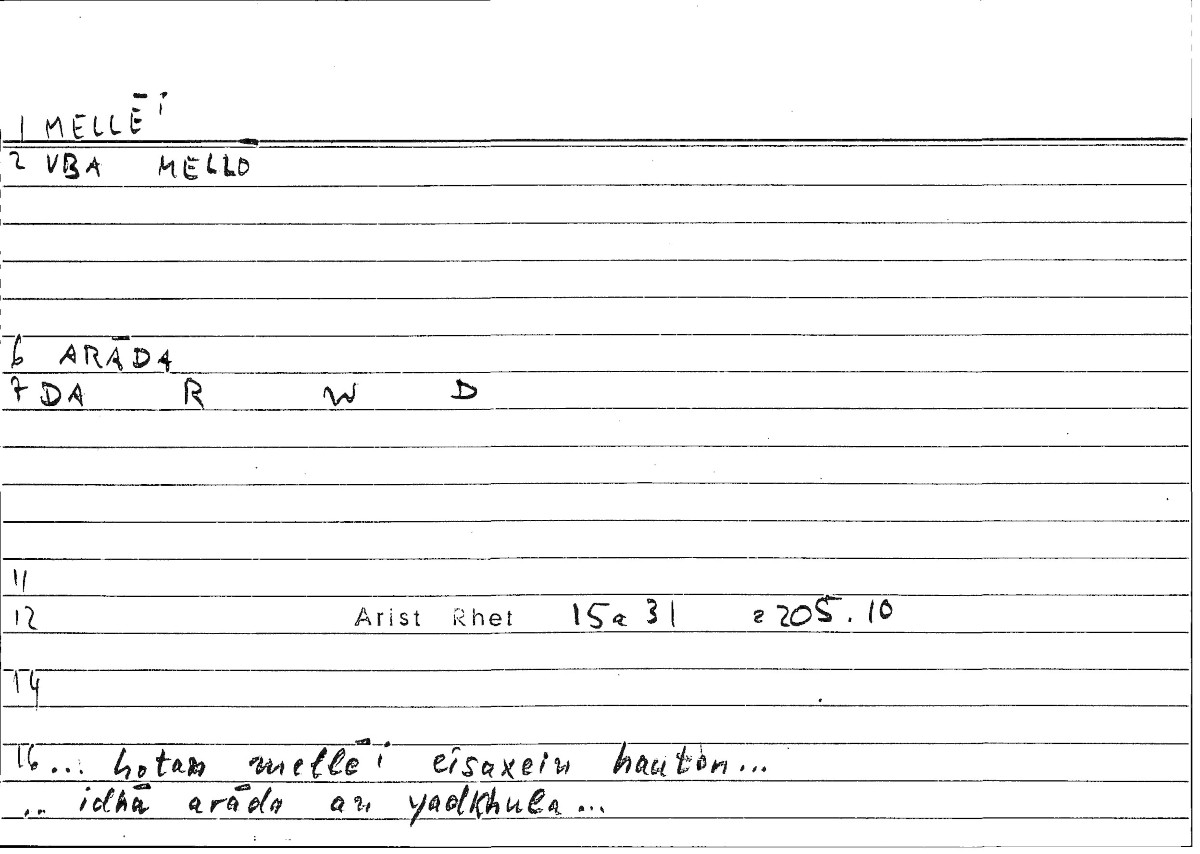 1 MELLĒi
2 VBA MELLO
6 ARĀDA
7 DA R W D
11
12 Arist Rhet 15a 31 = 205.10
14
16 ... hotan mellēi eisaxein hauton...
... idhā arāda an yadkhula...